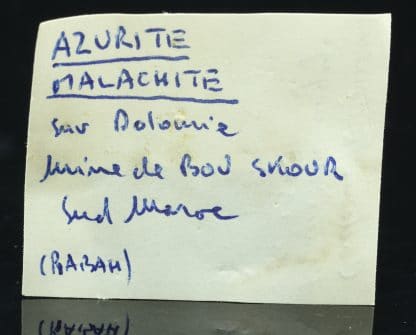 AZURITE
MALACHITE
sur Dolomie
Mine de BOU SKOUR
Sud Maroc
(RABAH)